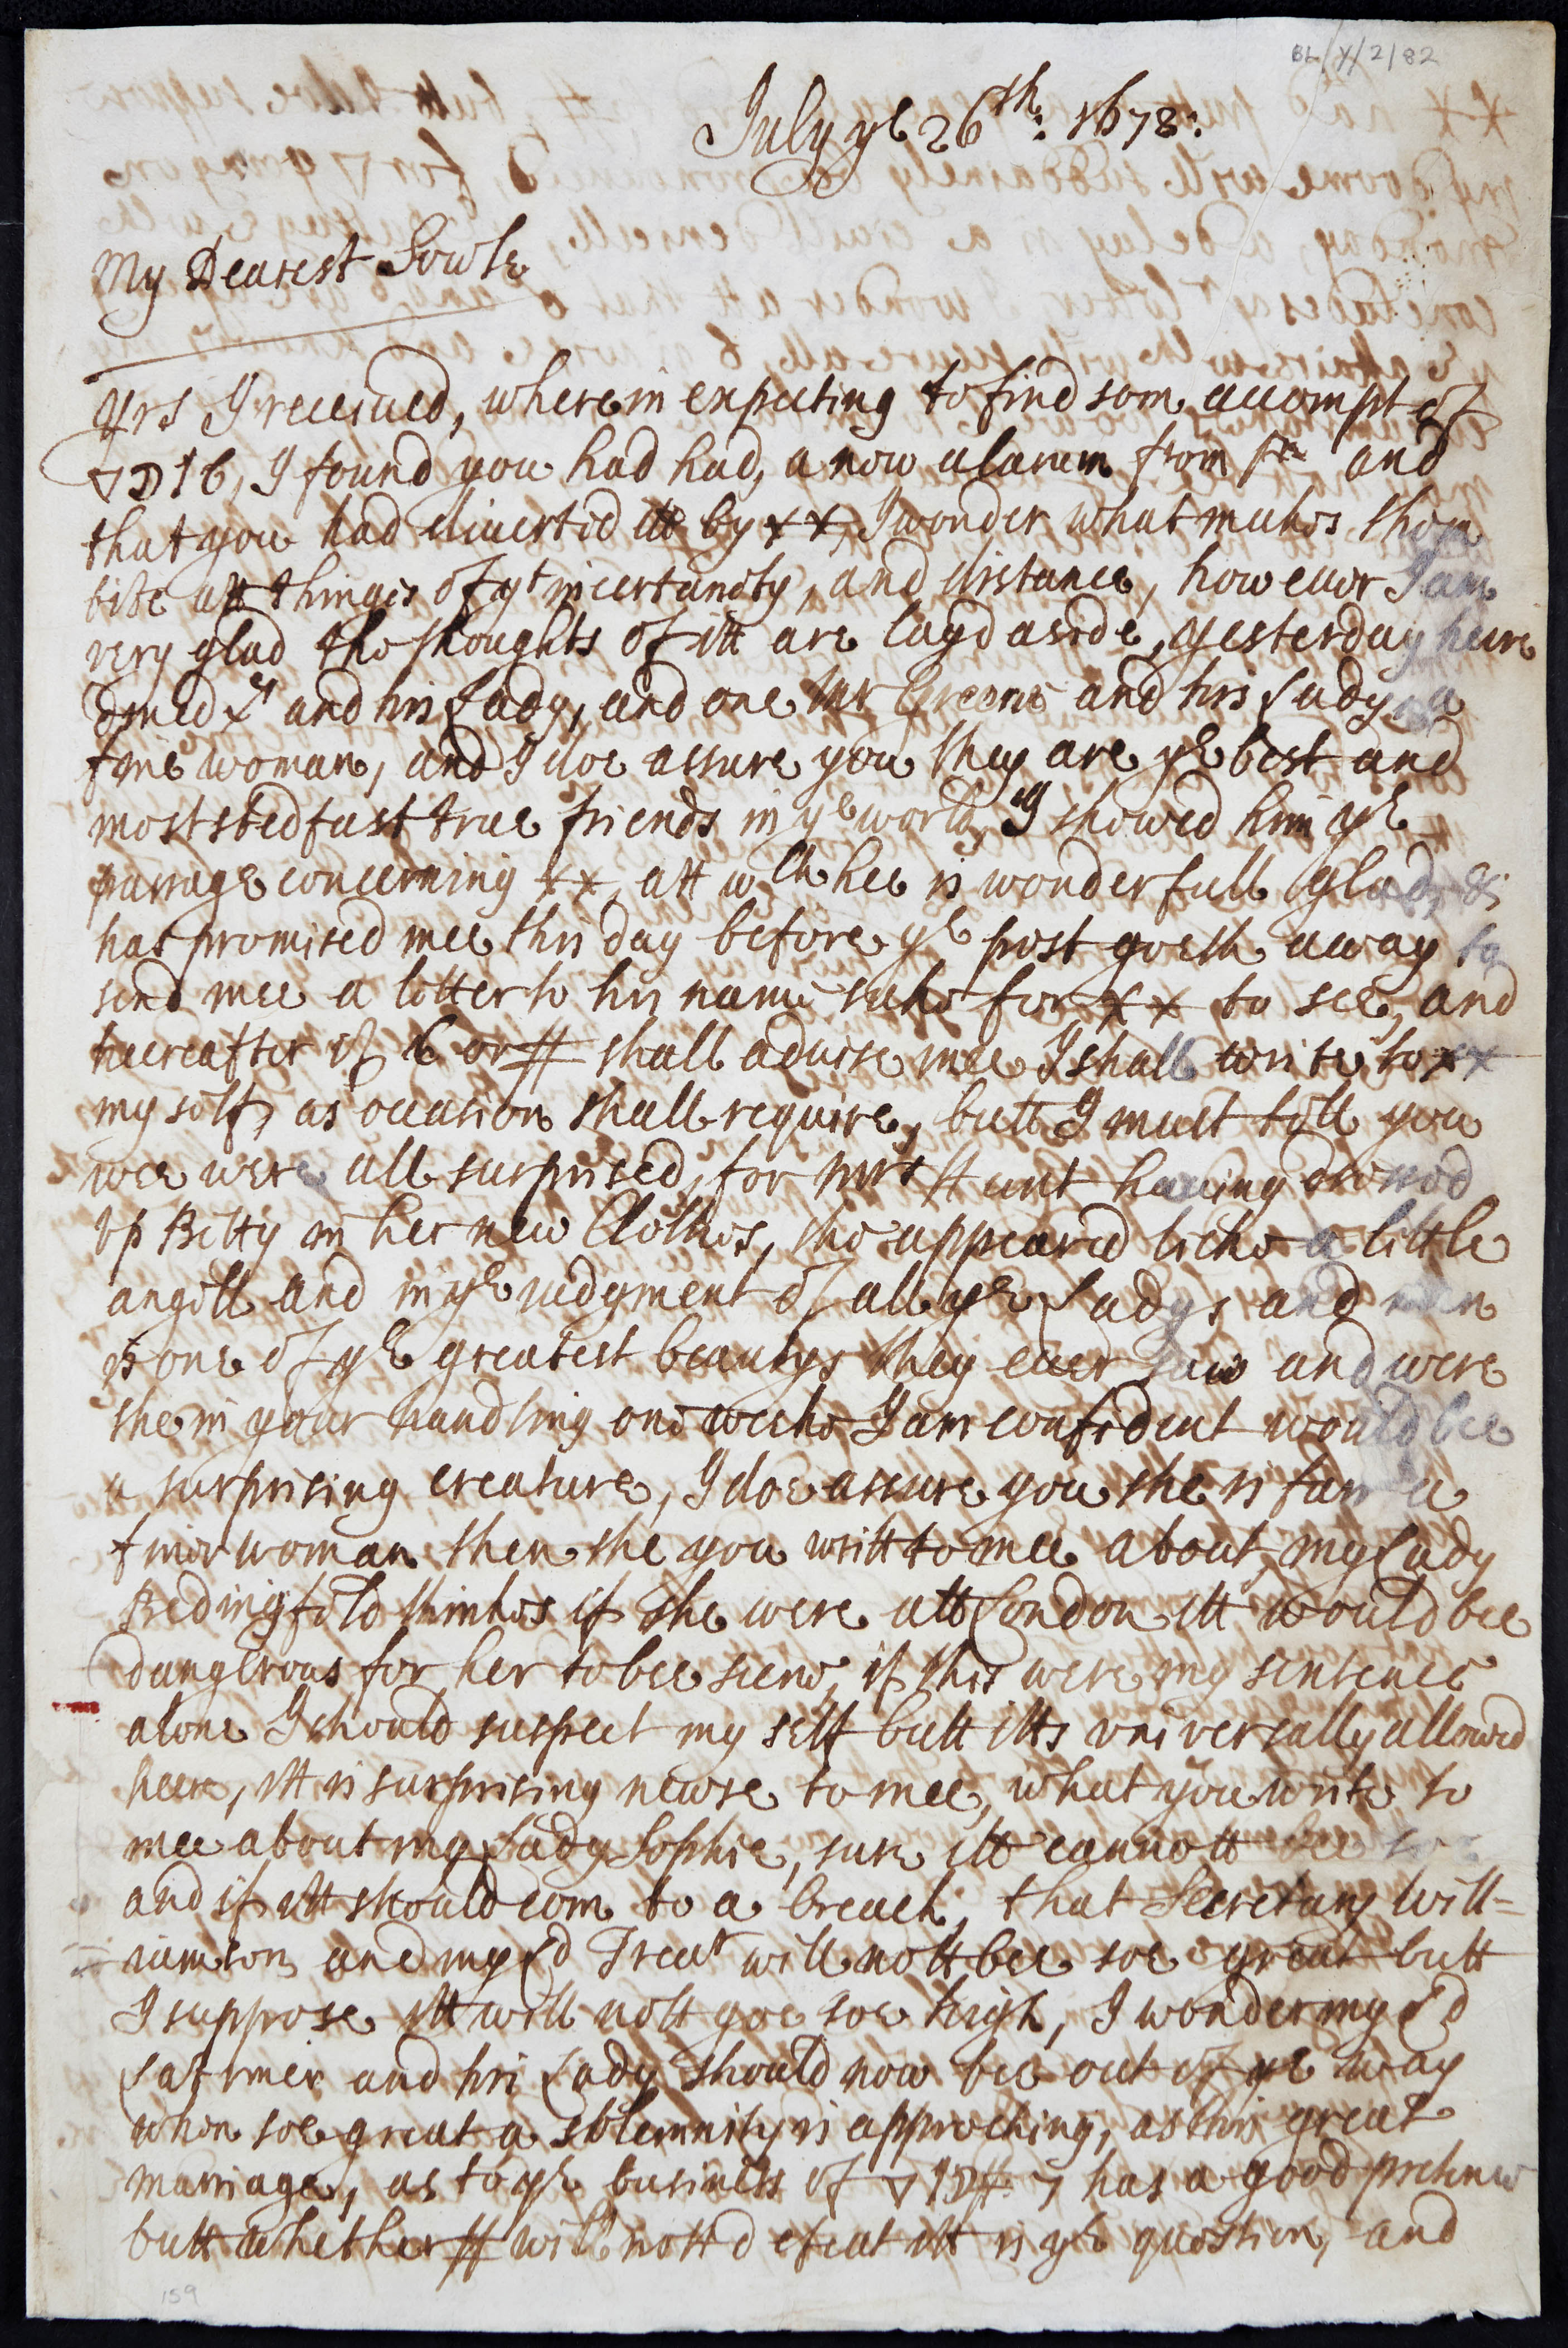 BL/Y/2/82
July ye 26th: 1678:
My Dearest Sowle
Yrs I received, wherein expecting to find som accompt of
I found you had had, a now alarum from and
that you had divertid itt by xx, I wonder what makes them
bite att things of yt incertandty, and distance, however I am
very glad the thoughts of itt are layd aside, yesterday heere
dined and his Lady, and one Mr Greene and his Lady, a
fine woman, and I doe assure you they are ye best and
most stedfast true friends in ye world, I showed him ye
passage concerning xx, att wch hee is wonderfull glad, &
has promised mee this day before ye post goeth away to
send mee a letter to his name sake for xx to see, and
heereafter if 6 or # shall advise mee I shall write to xx
my self, as occasion shall require, butt I must tell you
wee were all surprised, for Mrs Hunt having dressed
up Betty in her new Clothes, she appeared like a little
angell and in ye judgment of all ye Ladys and men
is one of ye greatest beautys they ever saw and were
she in your handling one weeke I am confident would bee
a surprising creature, I doe assure you she is farr a
finer woman then she you writt to mee about, my Lady
Bedingfeld thinkes if she were att London itt would bee
dangerous for her to bee seene, if this were my sentence
alone I should suspect my self butt itts universally allowed
heere, itt is surprising newse to mee, what you write to
mee about my Lady Sophie, sure itt cannott bee soe
and if itt should com to a breach, that Secretary Will=
=iamson and my Ld Trear will nott bee soe great butt
I suppose itt will nott goe soe high, I wonder my Ld
Latimer and his Lady should now bee out of ye way
when soe great a solemnity is approching, as this great
marriage, as to ye business of has a good pretence
butt whether # will nott defeat itt is ye question, and
159